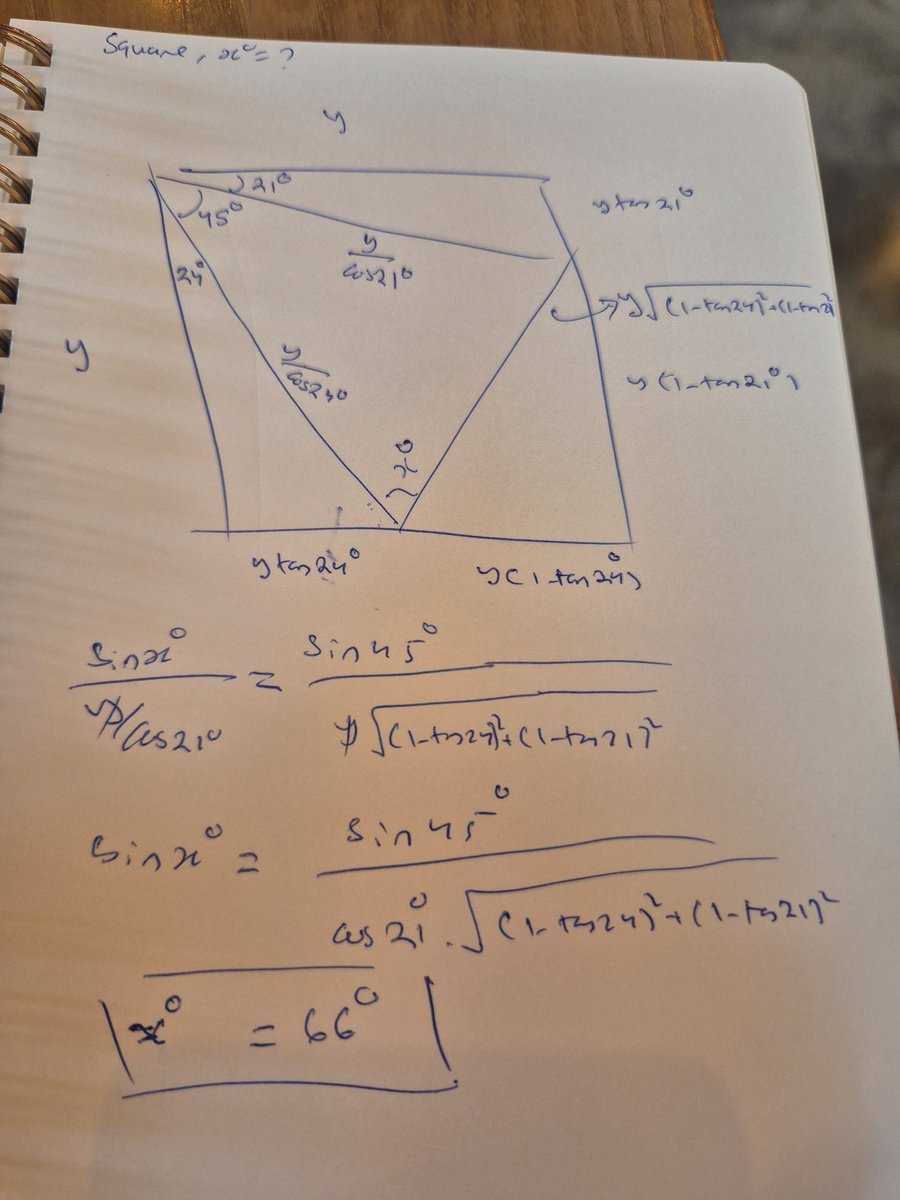 Square, x° = ?
y
21°
y tan 21°
45°
y/cos21°
24°
y√(1-tan24)²+(1-tan21)²
y
y/cos24°
y(1-tan21°)
x°
y tan 24°
y(1-tan24°)
sin x° / y/cos21° = sin 45° / y√(1-tan24)²+(1-tan21)²
sin x° = sin 45° / cos 21° . √(1-tan24)²+(1-tan21)²
x° = 66°